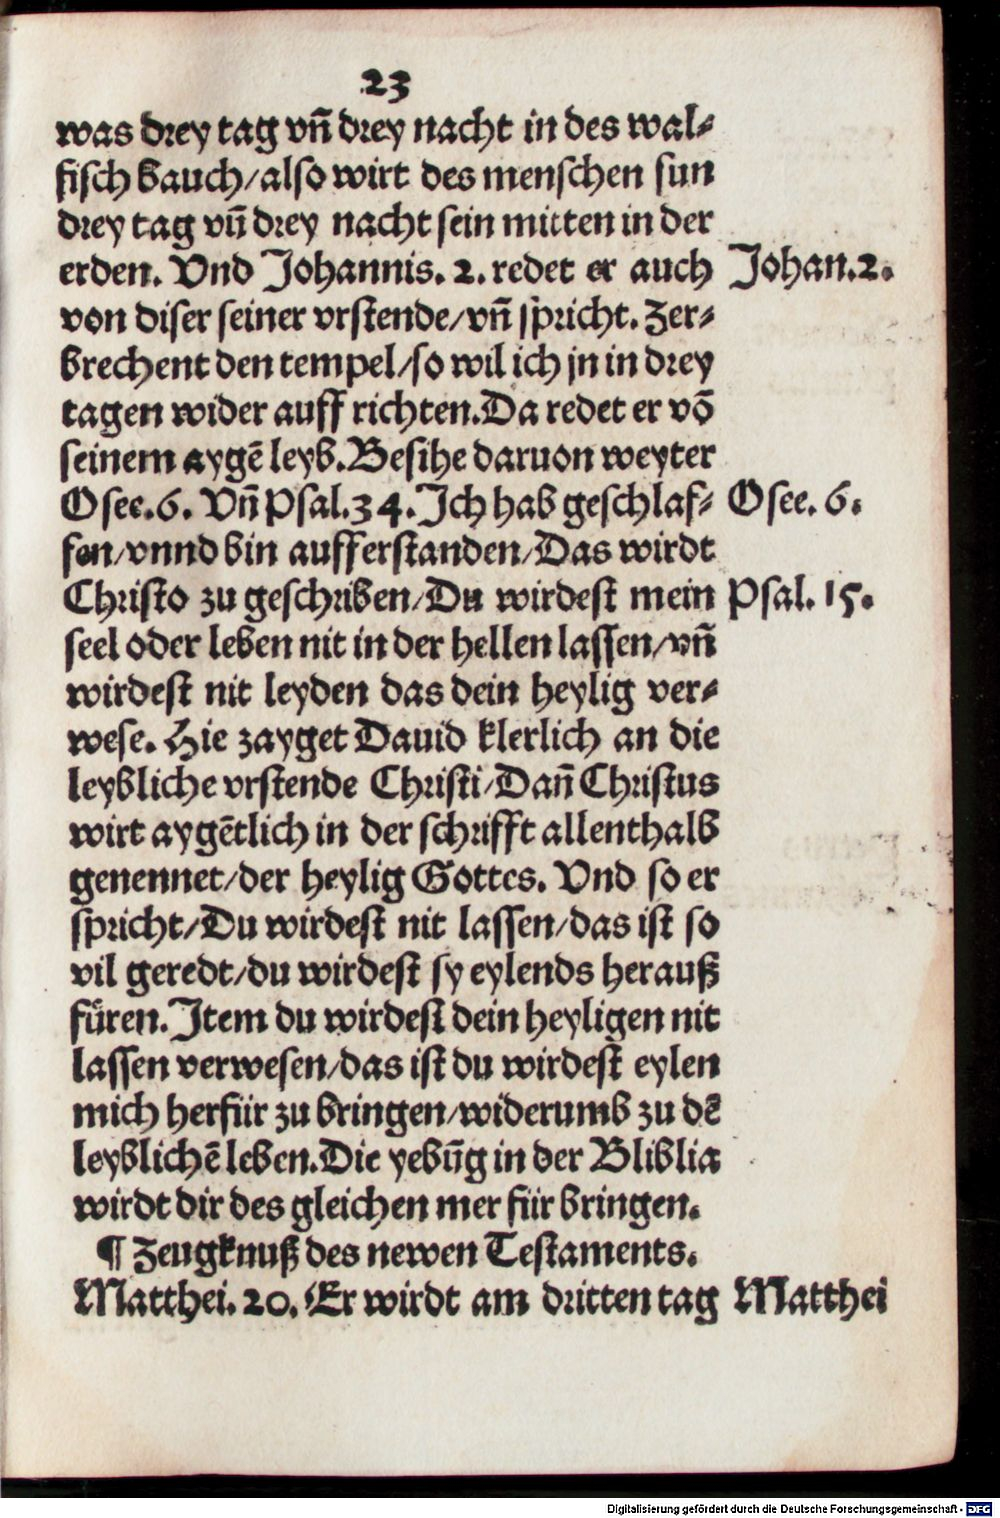 23
was drey tag vñ drey nacht in des wal⸗
fisch bauch/also wirt des menschen sun
drey tag vñ drey nacht sein mitten in der
erden. Vnd Johannis. 2. redet er auch Johan.2.
von diser seiner vrstende/vñ spricht. Zer⸗
brechent den tempel/so wil ich jn in drey
tagen wider auff richten.Da redet er võ
seinem aygẽ leyb.Besihe daruon weyter
Osee.6. Vñ Psal.34.Ich hab geschlaf⸗ Osee. 6.
fen/vnnd bin aufferstanden/Das wirdt
Christo zu geschriben/Du wirdest mein Psal. 15.
seel oder leben nit in der hellen lassen/vñ
wirdest nit leyden das dein heylig ver⸗
wese. Hie zayget Dauid klerlich an die
leybliche vrstende Christi/Dañ Christus
wirt aygẽtlich in der schrifft allenthalb
genennet/der heylig Gottes. Vnd so er
spricht/Du wirdest nit lassen/das ist so
vil geredt/du wirdest sy eylends herauß
füren.Item du wirdest dein heyligen nit
lassen verwesen/das ist du wirdest eylen
mich herfür zu bringen/widerumb zu dẽ
leyblichẽ leben.Die yebũg in der Bliblia
wirdt dir des gleichen mer für bringen.
¶ Zeugknuß des newen Testaments.
Matthei. 20. Er wirdt am dritten tag Matthei
Digitalisierung gefördert durch die Deutsche Forschungsgemeinschaft - DFG